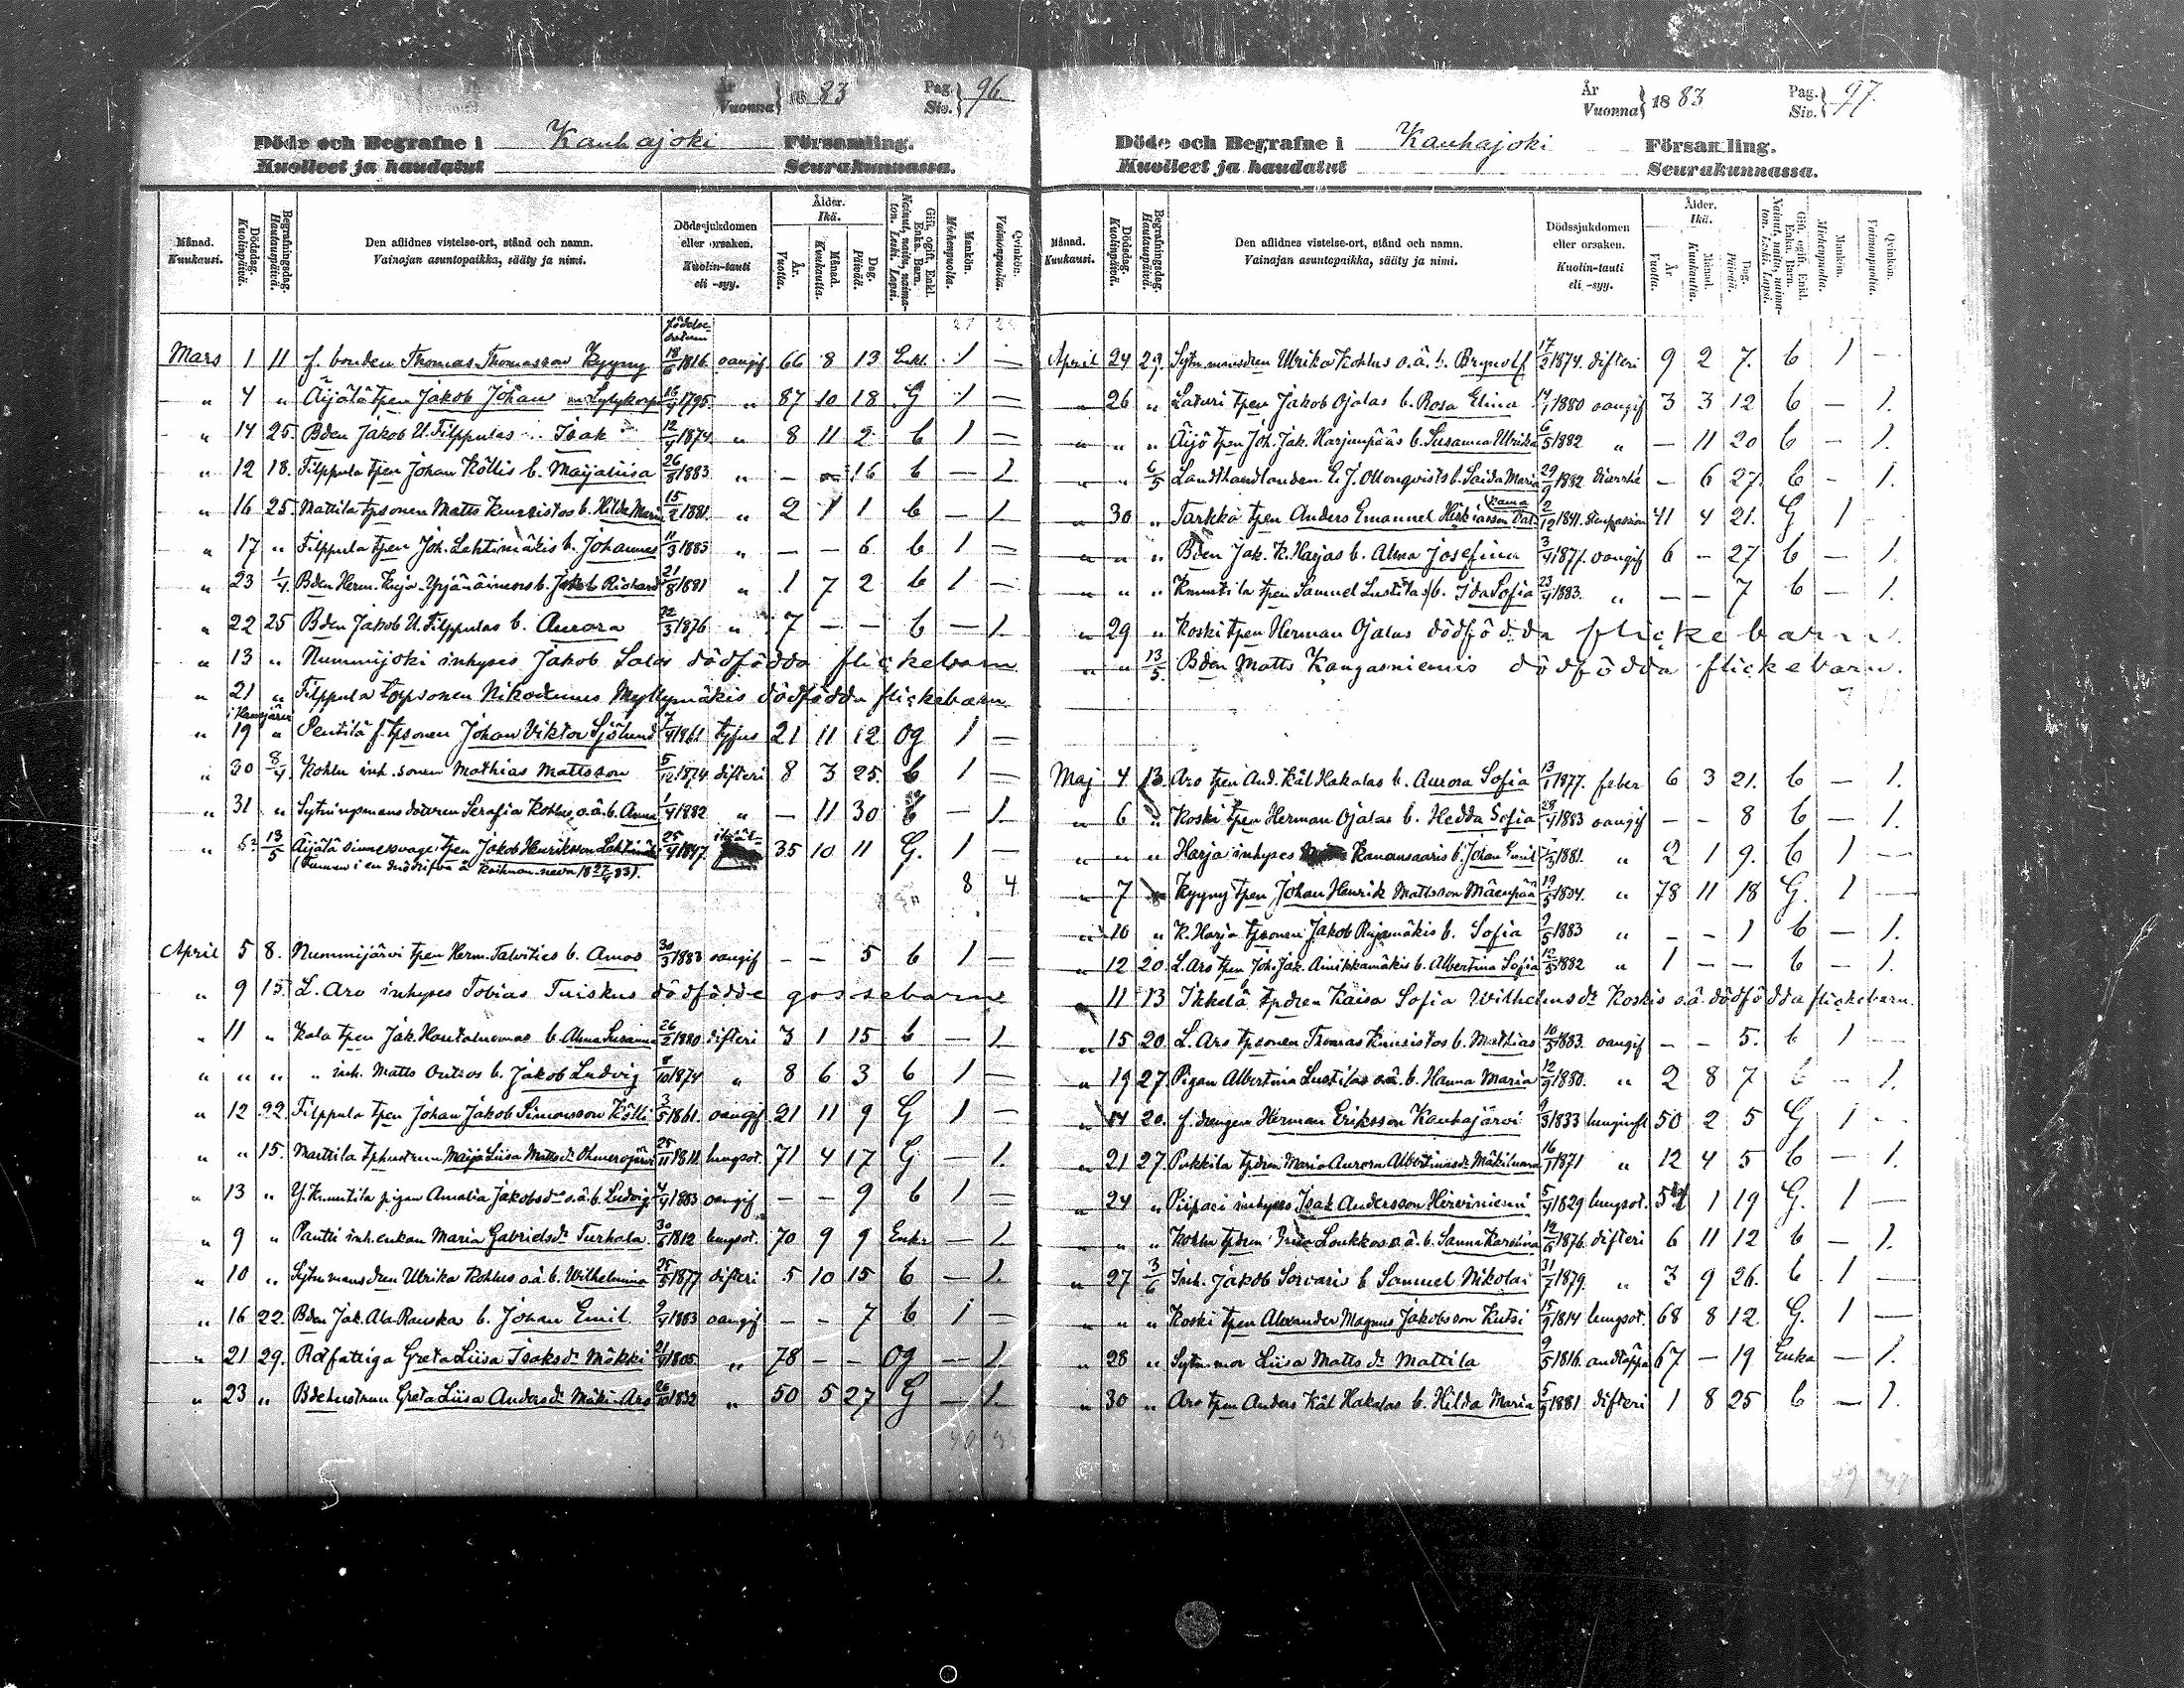 År
Vuonna } 1883
Pag.
Siv. } 96
Döde och Begrafne i Kauhajoki Församling.
Kuolleet ja haudatut Seurakunnassa.
Månad. Kuukausi.
Dödsdag. Kuolinpäivä.
Begrafningsdag. Hautauspäivä.
Den aflidnes vistelse-ort, stånd och namn.
Vainajan asuntopaikka, sääty ja nimi.
Dödssjukdomen eller orsaken.
Kuolin-tauti eli -syy.
Ålder. Ikä.
År. Vuotta.
Månad. Kuukautta.
Dag. Päivää.
Gift, ogift, Enkl. Enka. Barn.
Nainut, naitu, naimaton. Leski. Lapsi.
Mankön. Miehenpuolta.
Qvinkön. Vaimonpuolta.
födelse-datum
Mars 1 11 f. bonden Thomas Thomasson Kyyny 18/6 1816 oangif 66 8 13 Enkl. 1 —
" 4 " Äijälä tpen Jakob Johan Lylykorpi 16/4 1795 " 87 10 18 G 1 —
" 14 25. Bden Jakob U. Filppulas Isak 12/4 1874 " 8 11 2 b 1 —
" 12 18. Filppula tpen Johan Köllis b. Maijaliisa 26/ 1883 " — 16 b — 1
" 16 25 Mattila tpsonen Matts Kuusistos b. Hilda Maria 15/2 1881 " 2 1 1 b — 1
" 17 " Filppula tpen Joh. Lehtimäkis b. Johannes 11/3 1883 " — — 6 b 1 —
" 23 1/4 Bden Herm. Harja-Yrjänäinens b. Jakob Richard 21/8 1881 " 1 7 2 b 1 —
" 22 25 Bden Jakob U. Filppulas b. Aurora 22/3 1876 " 7 — — b — 1.
" 13 " Nummijoki inhyses Jakob Salos dödfödda flickebarn
" 21 " Filppula torpsonen Nikodemus Myllymäkis dödfödda flickebarn
" 19 " Pentilä f. tpsonen Johan Viktor Sjölund 7/4 1861 tyfus 21 11 12 og 1 —
" 30 8/4 Kohlu inh. sonen Mathias Mattsson 5/12 1874 difteri 8 3 25. b 1 —
" 31 " Sytningsmans dotren Serafia Kohlus o.ä. b. Anna 1/4 1882 " — 11 30 b — 1
" 13/5 Äijälä sinnessvage tpen Jakob Henriksson 25/4 1847 35 10 11 G. 1 —
8 4
April 5 8. Nummijärvi tpen Herm. Talvities b. Amos 30/3 1883 oangif — — 5 b 1 —
" 9 15. L. Aro inhyses Tobias Tuiskus dödfödde gossebarn
" 11 " tpen Jak. b. Alma Susanna 26/2 1880 difteri 3 1 15 b — 1
" " " " inh. Matts b. Jakob Ludvig 8/10 1874 " 8 6 3 b 1 —
" 12 22. Filppula tpen Johan Jakob Simonsson Kölli 3/5 1861. oangif 21 11 9 G 1 —
" " 15. Mattila tphustrun Maija Liisa Mattsdr 25/11 1811 lungsot. 71 4 17 G — 1.
" 13 " Y. Knuutila pigan Amalia Jakobsdr o.ä. b. Ludvig 4/4 1883 oangif — — 9 b 1 —
" 9 " Pantti inh. enkan Maria Gabrielsdr Turhala 30/6 1812 lungsot. 70 9 9 Enka — 1.
" 10 " Sytnmansdren Ulrika Kohlus o.ä. b. Wilhelmina 25/5 1877 difteri 5 10 15 b — 1.
" 16 22. Bden Jak. Ala Rauska b. Johan Emil 9/4 1883 oangif — — 7 b 1 —
" 21 29. Rotfattiga Greta Liisa Isaksdr Mäkki 21/4 1805 " 78 — — og — 1.
" 23 " Bdehustrun Greta Liisa Andersdr Mäki-Aro 26/10 1832 " 50 5 27 G — 1.
År
Vuonna } 1883
Pag.
Siv. } 97
Döde och Begrafne i Kauhajoki Församling.
Kuolleet ja haudatut Seurakunnassa.
Månad. Kuukausi.
Dödsdag. Kuolinpäivä.
Begrafningsdag. Hautauspäivä.
Den aflidnes vistelse-ort, stånd och namn.
Vainajan asuntopaikka, sääty ja nimi.
Dödssjukdomen eller orsaken.
Kuolin-tauti eli -syy.
Ålder. Ikä.
År. Vuotta.
Månad. Kuukautta.
Dag. Päivää.
Gift, ogift, Enkl. Enka. Barn.
Nainut, naitu, naimaton. Leski. Lapsi.
Mankön. Miehenpuolta.
Qvinkön. Vaimonpuolta.
April 24 29. Sytn.mansdren Ulrika Kohlus o.ä. b. Brynolf 17/2 1874. difteri 9 2 7. b 1 —
" 26 " Laturi tpen Jakob Ojalas b. Rosa Elina 14/1 1880 oangif 3 3 12 b — 1.
" " " Äijö tpen Joh. Jak. Harjunpääs b. Susanna Ulrika 6/5 1882 " — 11 20 b — 1.
" " 6/5 Landthandlanden E. J. Ollonqvists b. Saida Maria 29/9 1882 diarrhé — 6 27. b — 1.
" 30 " Tarkka tpen Anders Emanuel 2/12 1841. 41 4 21. G 1
" " " Bden Jak. K. Harjas b. Alma Josefina 3/4 1877. oangif 6 — 27 b — 1.
" " " Knuutila tpen Samuel Lustilas b. Ida Sofia 23/4 1883. " — — 7 b — 1.
" 29 " Koski tpen Herman Ojalas dödfödda flickebarn.
" " 13/5. Bden Matts Kangasniemis dödfödda flickebarn.
Maj 4 13. Aro tpen And. Käl Hakalas b. Aurora Sofia 13/1 1877. feber 6 3 21. b — 1.
" 6 " Koski tpen Herman Ojalas b. Hedda Sofia 28/4 1883 oangif — — 8 b — 1.
" " " Harja inhyses Kanansaaris b. Johan Emil /3 1881. " 2 1 9. b 1 —
" 7 " Kyyny tpen Johan Henrik Mattsson Mäenpää 19/5 1804. " 78 11 18 G. 1 —
" 10 " K. Harja tpsonen Jakob Rajamäkis b. Sofia 9/5 1883 " — — 1 b — 1.
" 12 20. L. Aro tpen Joh. Jak. Ainikkamäkis b. Albertina Sofia 12/5 1882 " 1 — — b — 1.
" 11 13 Ikkelä tpdren Kaisa Sofia Wilhelmsdr Koskis o.ä. dödfödda flickebarn.
" 15 20. L. Aro tpsonen Thomas Kuusistos b. Mathias 10/5 1883. oangif — — 5. b 1 —
" 19 27 Pigan Albertina Lustilas o.ä. b. Hanna Maria 12/9 1880. " 2 8 7 b — 1.
" 14 20. f. drengen Herman Eriksson Kauhajärvi 9/3 1833 lunginfl 50 2 5 G 1 —
" 21 27. Pukkila tpdren Maria Aurora Albertinasdr 16/1 1871 " 12 4 5 b — 1.
" 24 " Piipari inhyses Isak Andersson Hirviniemi 5/4 1829 lungsot. 54 1 19 G. 1 —
" " " Kohlu tpdren Loukkos o.ä. b. Sanna Karolina 12/6 1876. difteri 6 11 12 b — 1.
" 27 3/6 Inh. Jakob Sorvaris b Samuel Nikolai 31/7 1879. " 3 9 26. b 1 —
" " " Koski tpen Alexander Magnus Jakobsson Kutsi 15/9 1814 lungsot. 68 8 12. G. 1 —
" 28 " Sytn.mor Liisa Mattsdr Mattila 9/5 1816. andtäppa 67 — 19 Enka — 1.
" 30 " Aro tpen Anders Käl Hakalas b. Hilda Maria 5/9 1881 difteri 1 8 25 b — 1.